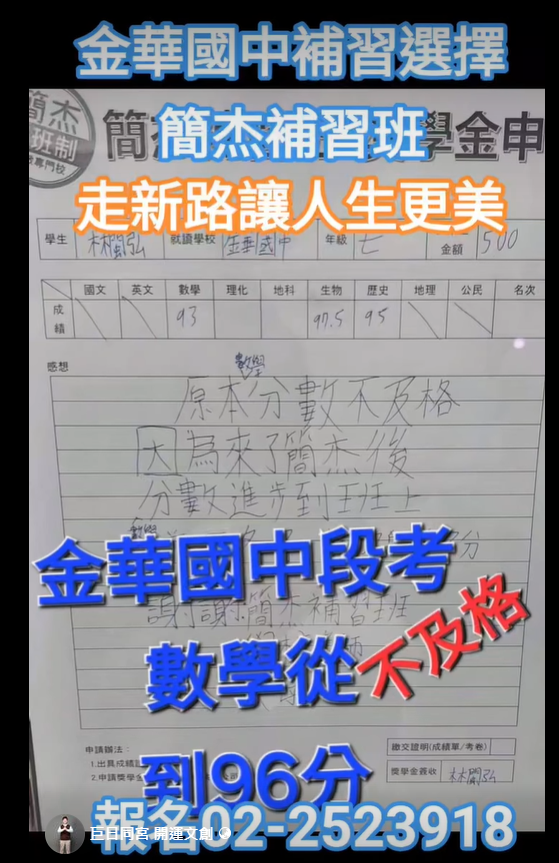 金華國中補習選擇
簡杰
班制
專門校
簡
學金申
簡杰補習班
走新路讓人生更美
學生 林閩弘 就讀學校 金華國中 年級 七 金額 500
國文 英文 數學 理化 地科 生物 歷史 地理 公民 名次
成績 93 97.5 95
感想
數學
原本分數不及格
因為來了簡杰後
分數進步到班上
數學
分
金華國中段考
謝謝簡杰補習班
數學從不及格
申請辦法：
繳交證明(成績單/考卷)
1.出具成績
2.申請獎學金
獎學金簽收 林閩弘
到96分
報名02-2523918
巨日同宮.開運文創